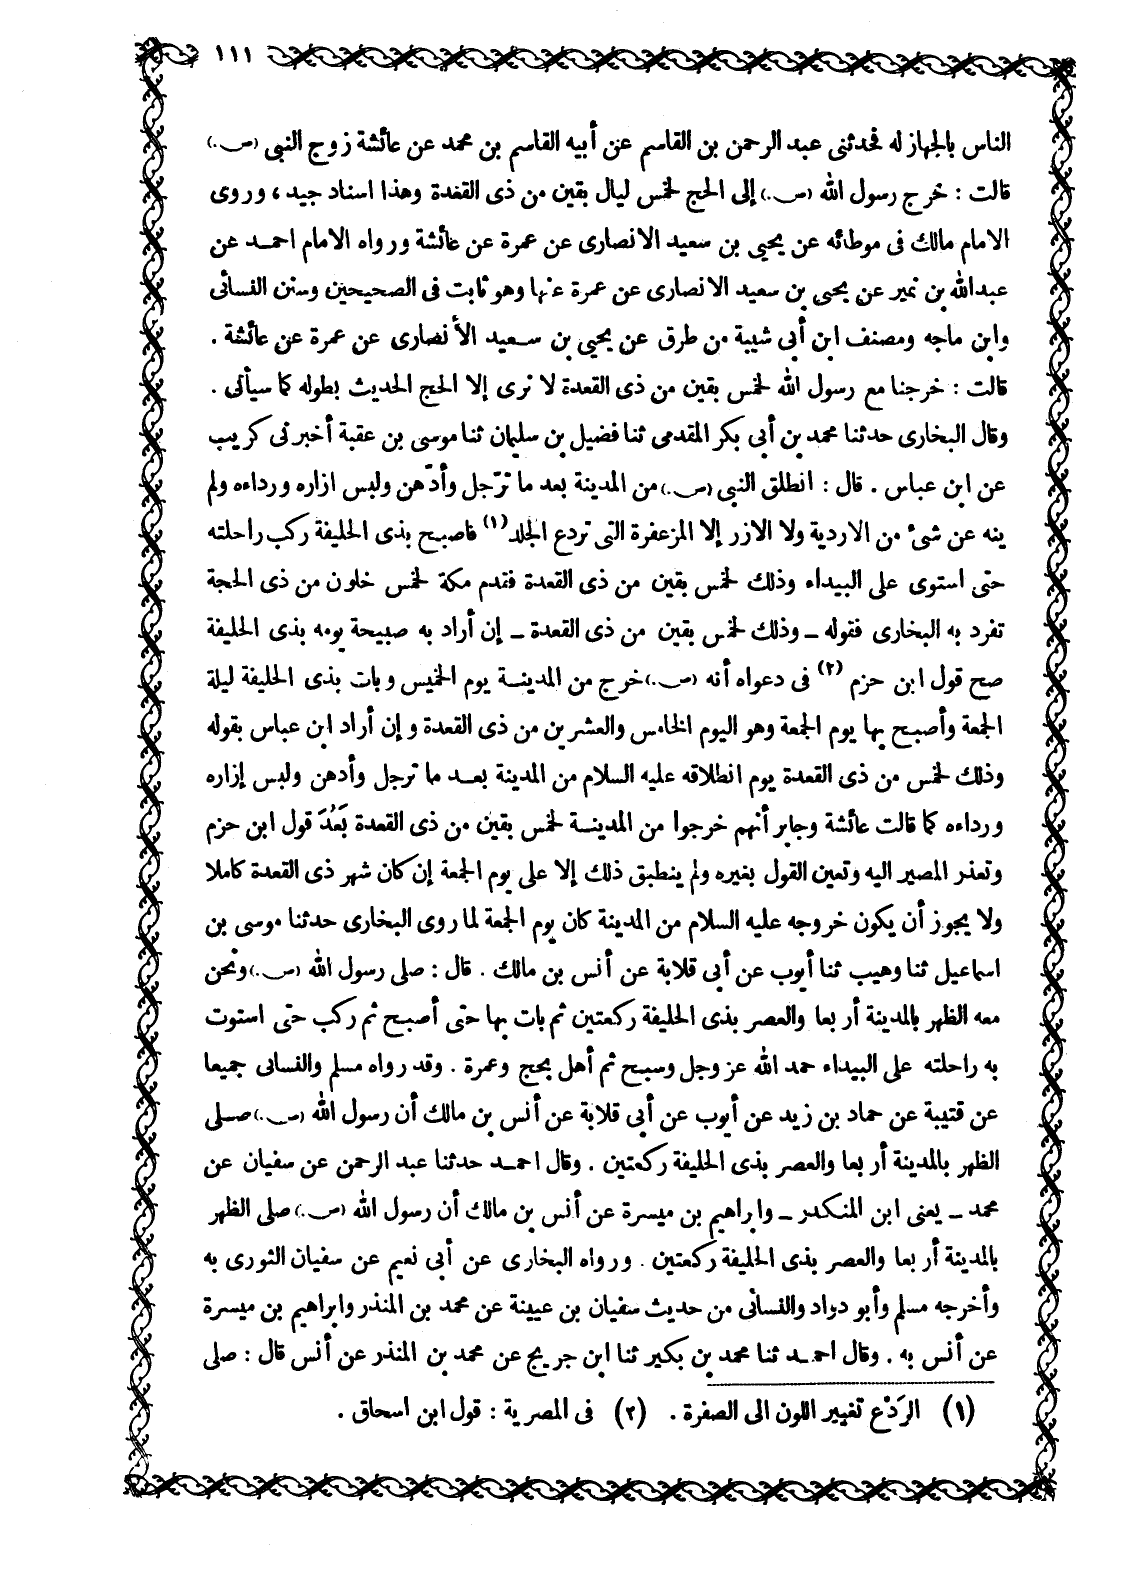 ١١١
الناس بالجهاز له فحدثنى عبد الرحمن بن القاسم عن أبيه القاسم بن محمد عن عائشة زوج النبى (ص.)
قالت : خرج رسول الله (ص.) إلى الحج لخمس ليال بقين من ذى القعدة وهذا اسناد جيد ، وروى
الامام مالك فى موطائه عن يحيى بن سعيد الانصارى عن عمرة عن عائشة ورواه الامام احمد عن
عبدالله بن نمير عن يحيى بن سعيد الانصارى عن عمرة عنها وهو ثابت فى الصحيحين وسنن النسائى
وابن ماجه ومصنف ابن أبى شيبة من طرق عن يحيى بن سعيد الأنصارى عن عمرة عن عائشة .
قالت : خرجنا مع رسول الله لخمس بقين من ذى القعدة لا نرى إلا الحج الحديث بطوله كما سيأتى .
وقال البخارى حدثنا محمد بن أبى بكر المقدمى ثنا فضيل بن سليمان ثنا موسى بن عقبة أخبرنى كريب
عن ابن عباس . قال : انطلق النبى (ص.) من المدينة بعد ما ترّجل وأدّهن ولبس ازاره ورداءه ولم
ينه عن شىء من الاردية ولا الازر إلا المزعفرة التى تردع الجلد (١) فاصبح بذى الحليفة ركب راحلته
حتى استوى على البيداء وذلك لخمس بقين من ذى القعدة فقدم مكة لخمس خلون من ذى الحجة
تفرد به البخارى فقوله ــ وذلك لخمس بقين من ذى القعدة ــ إن أراد به صبيحة يومه بذى الحليفة
صح قول ابن حزم (٢) فى دعواه أنه (ص.) خرج من المدينة يوم الخميس وبات بذى الحليفة ليلة
الجمعة وأصبح بها يوم الجمعة وهو اليوم الخامس والعشرين من ذى القعدة وإن أراد ابن عباس بقوله
وذلك لخمس من ذى القعدة يوم انطلاقه عليه السلام من المدينة بعد ما ترجل وأدهن ولبس إزاره
ورداءه كما قالت عائشة وجابر أنهم خرجوا من المدينة لخمس بقين من ذى القعدة بَعُدَ قول ابن حزم
وتعذر المصير اليه وتعين القول بغيره ولم ينطبق ذلك إلا على يوم الجمعة إن كان شهر ذى القعدة كاملا
ولا يجوز أن يكون خروجه عليه السلام من المدينة كان يوم الجمعة لما روى البخارى حدثنا موسى بن
اسماعيل ثنا وهيب ثنا أيوب عن أبى قلابة عن أنس بن مالك . قال : صلى رسول الله (ص.) ونحن
معه الظهر بالمدينة أربعا والعصر بذى الحليفة ركعتين ثم بات بها حتى أصبح ثم ركب حتى استوت
به راحلته على البيداء حمد الله عز وجل وسبح ثم أهل بحج وعمرة . وقد رواه مسلم والنسائى جميعا
عن قتيبة عن حماد بن زيد عن أيوب عن أبى قلابة عن أنس بن مالك أن رسول الله (ص.) صلى
الظهر بالمدينة أربعا والعصر بذى الحليفة ركعتين . وقال احمد حدثنا عبد الرحمن عن سفيان عن
محمد ــ يعنى ابن المنكدر ــ وابراهيم بن ميسرة عن أنس بن مالك أن رسول الله (ص.) صلى الظهر
بالمدينة أربعا والعصر بذى الحليفة ركعتين . ورواه البخارى عن أبى نعيم عن سفيان الثورى به
وأخرجه مسلم وأبو دواد والنسائى من حديث سفيان بن عيينة عن محمد بن المنذر وابراهيم بن ميسرة
عن أنس به . وقال احمد ثنا محمد بن بكير ثنا ابن جريج عن محمد بن المنذر عن أنس قال : صلى
(١) الرَدْع تغيير اللون الى الصفرة . (٢) فى المصرية : قول ابن اسحاق .